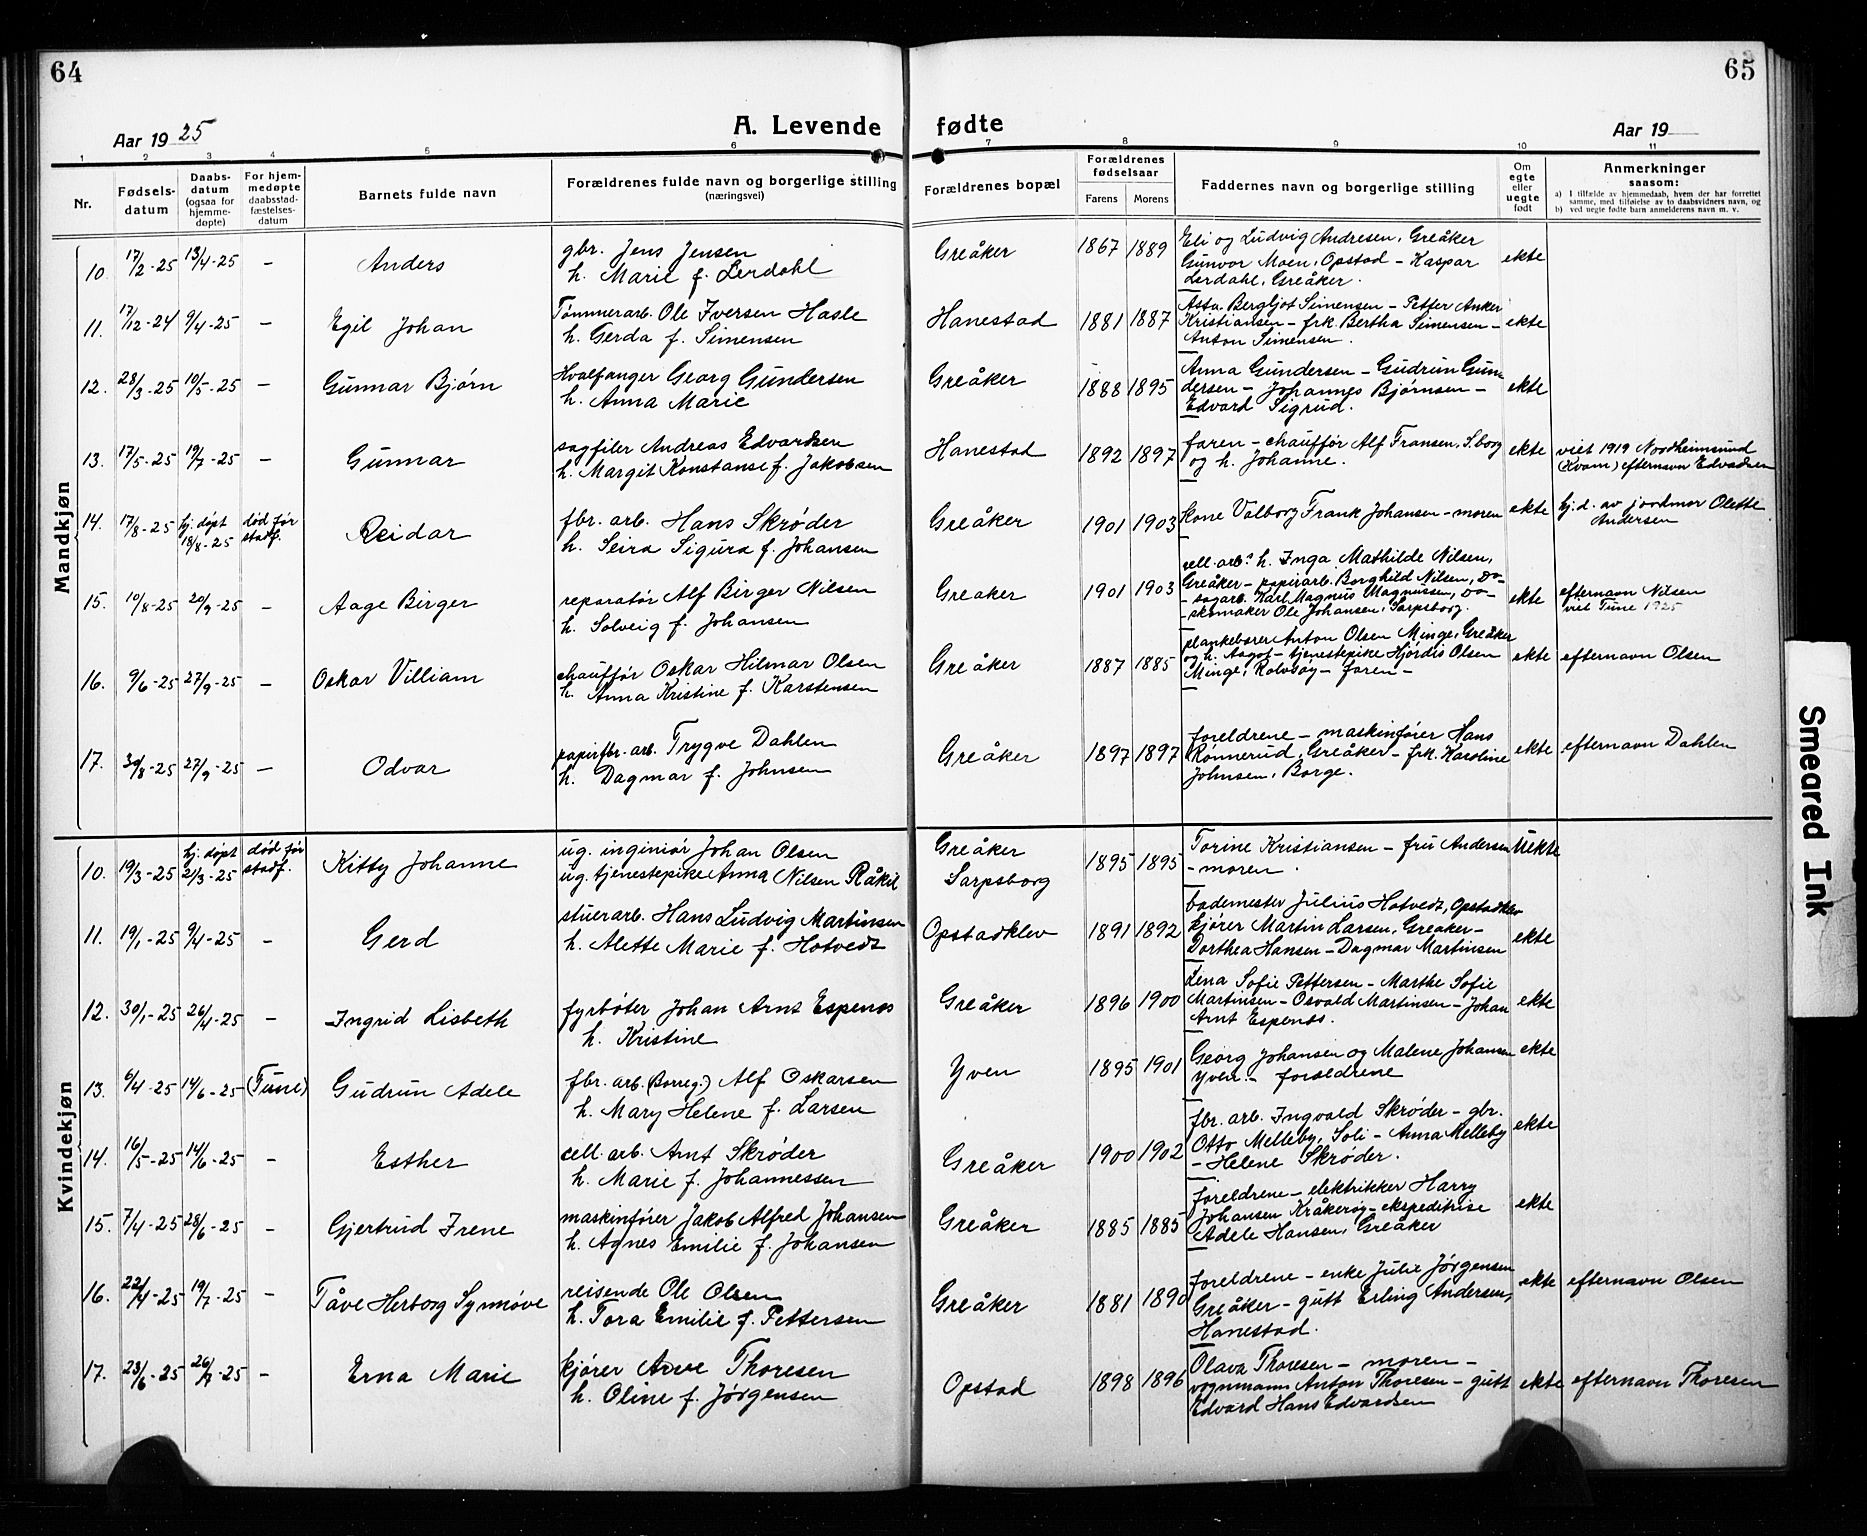 64
65
Aar 1925
A. Levende fødte
Aar 19
1 2 3 4 5 6 7 8 9 10 11
Nr.
Fødsels-
datum
Daabs-
datum
(ogsaa for
hjemme-
døpte)
For hjem-
medøpte
daabsstad-
fæstelses-
datum
Barnets fulde navn
Forældrenes fulde navn og borgerlige stilling
(næringsvei)
Forældrenes bopæl
Forældrenes
fødselsaar
Farens Morens
Faddernes navn og borgerlige stilling
Om
egte
eller
uegte
født
Anmerkninger
saasom:
a) I tilfælde av hjemmedaab, hvem der har forrettet
samme, med tilføielse av to daabsvidners navn, og
b) ved uegte fødte barn anmelderens navn m. v.
Mandkjøn
10. 17/2-25 13/4-25 - Anders
gbr. Jens Jensen
h. Marie f. Lerdahl
Greåker 1867 1889
Eli og Ludvig Andresen, Greåker
Gunvor Moen, Opstad - Kaspar
Lerdahl, Greåker.
ekte
11. 17/12-24 9/4-25 - Egil Johan
Tømmerarb. Ole Iversen Hasle
h. Gerda f. Simensen
Hanestad 1881 1887
Asta Bergljot Simensen - Petter Anker
Kristiansen - frk. Bertha Simensen -
Anton Simensen.
ekte
12. 28/3-25 10/5-25 - Gunnar Bjørn
Hvalfanger Georg Gundersen
h. Anna Marie
Greåker 1888 1895
Anna Gundersen - Gudrun Gun
dersen - Johannes Bjørnsen -
Edvard Sigrud.
ekte
13. 17/5-25 19/7-25 - Gunnar
sagfiler Andreas Edvardsen
h. Margit Konstanse f. Jakobsen
Hanestad 1892 1897
faren - chauffør Alf Fransen, S.borg
og h. Johanne.
ekte
viet 1919 Nordheimsund
(Kvam) efternavn Edvardsen
14. 17/8-25 hj. døpt
18/8-25
død før
stadf.
Reidar
fbr. arb. Hans Skrøder
h. Seira Sigura f. Johansen
Greåker 1901 1903
kone Valborg Frank Johansen - moren
ekte
hj.d. av jordmor Olette
Andersen
15. 10/8-25 20/9-25 - Aage Birger
reparatør Alf Birger Nilsen
h. Solveig f. Johansen
Greaker 1901 1903
cell. arb. h. Inga Mathilde Nilsen,
Greåker - papirarb. Borghild Nilsen, Do
- sagarb. Karl Magnus Magnussen, Do -
- skomaker Ole Johansen, Sarpsborg.
ekte
efternavn Nilsen
viet Tune 1925
16. 9/6-25 27/9-25 - Oskar Villiam
chauffør Oskar Hilmar Olsen
h. Anna Kristine f. Karstensen
Greåker 1887 1885
plankebærer Anton Olsen Minge, Greåker
og h. Aagot - tjenestepike Hjørdis Olsen
Minge, Rolvsøy - faren -
ekte
efternavn Olsen
17. 30/8-25 27/9-25 - Odvar
papirfbr. arb. Trygve Dahlen
h. Dagmar f. Johnsen
Greåker 1897 1897
foreldrene - maskinfører Hans
Rønnerud, Greåker - frk. Karoline
Johnsen, Borge.
ekte
efternavn Dahlen
Kvindekjøn
10. 19/3-25 hj. døpt
21/3-25
død før
stadf.
Kitty Johanne
ug. inginiør Johan Olsen
ug. tjenestepike Anna Nilsen Råkil
Greåker
Sarpsborg
1895 1895
Torine Kristiansen - fru Andersen
- moren.
Uekte
11. 19/1-25 9/4-25 - Gerd
stuerarb. Hans Ludvig Martinsen
h. Alette Marie f. Hotvedt
Opstadklev 1891 1892
bademester Julius Hotvedt, Opstadklev
kjører Martin Larsen, Greaker -
Dorthea Hansen - Dagmar Martinsen
ekte
12. 30/1-25 26/4-25 - Ingrid Lisbeth
fyrbøter Johan Arnt Espenes
h. Kristine
Greåker 1896 1900
Lena Sofie Pettersen - Marthe Sofie
Martinsen - Osvald Martinsen - Johan
Arnt Espenes.
ekte
13. 6/4-25 14/6-25 (Tune) Gudrun Adele
fbr. arb. (Borreg.) Alf Oskarsen
h. Mary Helene f. Larsen
Yven 1895 1901
Georg Johansen og Malene Johansen
Yven. - foreldrene
ekte
14. 16/5-25 14/6-25 - Esther
cell. arb. Arnt Skrøder
h. Marie f. Johannessen
Greåker 1900 1902
fbr. arb. Ingvald Skrøder - gbr.
Otto Melleby, Soli - Anna Melleby
- Helene Skrøder.
ekte
15. 7/4-25 28/6-25 - Gjertrud Irene
maskinfører Jakob Alfred Johansen
h. Agnes Emilie f. Johansen
Greåker 1885 1885
foreldrene - elektrikker Harry
Johansen Kråkerøy - ekspeditrise
Adele Hansen, Greåker
ekte
16. 22/4-25 19/7-25 - Tåve Herborg Synnøve
reisende Ole Olsen
h. Tora Emilie f. Pettersen
Greåker 1881 1890
foreldrene - enke Julie Jørgensen
Greåker - gutt Erling Andersen,
Hanestad.
ekte
efternavn Olsen
17. 23/6-25 26/7-25 - Erna Marie
kjører Arve Thoresen
h. Oline f. Jørgensen
Opstad 1898 1896
Olava Thoresen - moren -
vognmann Anton Thoresen - gutt
Edvard Hans Edvardsen
ekte
efternavn Thoresen
Smeared Ink